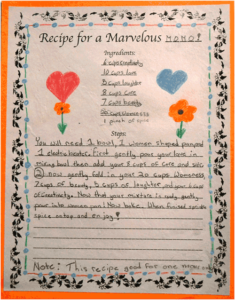 Recipe for a Marvelous MOMO!
Ingredients:
6 cups Creativity
10 cups love
5 cups laughter
8 cups care
7 cups beauty
20 cups Womeness
1 pinch of spice
Steps:
You will need 1 bowl, 1 woman shaped pan, and
1 electric beater. First gently pour your love in
mixing bowl then add your 8 cups of care and stir.
2 now gently fold in your 20 cups Womeness,
7 cups of beauty, 5 cups of laughter, and your 6 cups
of Creativity. Now that your mixture is ready gently
pour into women pan! Now bake. When finished sprinkle
spice on top and enjoy!
Note: This recipe good for one momo only